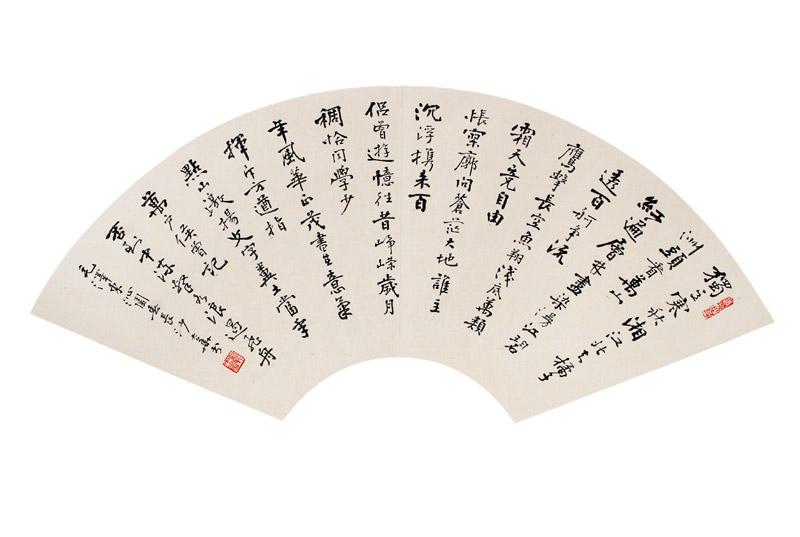 獨立寒秋湘江北去橘子
洲頭看萬山
紅遍層林盡染漫江碧
透百舸爭流
鷹擊長空魚翔淺底萬類
霜天競自由
悵寥廓問蒼茫大地誰主
沉浮攜來百
侶曾遊憶往昔崢嶸歲月
稠恰同學少
年風華正茂書生意氣
揮斥方遒指
點江山激揚文字糞土當年
萬戶侯曾記
否到中流擊水浪遏飛舟
毛澤東沁園春長沙